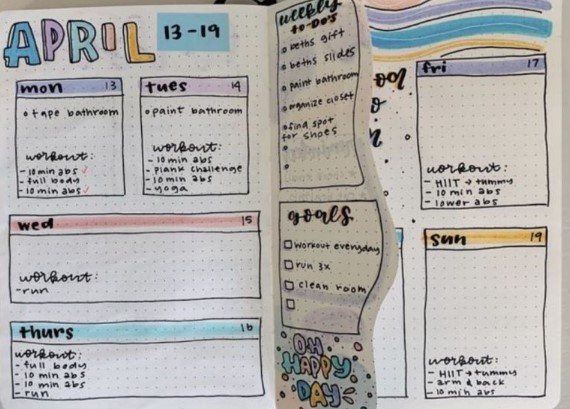 APRIL
13-19
mon 13
tape bathroom
workout:
- 10 min abs ✓
- full body
- 10 min abs ✓
tues 14
paint bathroom
workout:
- 10 min abs
- plank challenge
- 10 min abs
- yoga
wed 15
workout:
- run
thurs 16
workout:
- full body
- 10 min abs
- 10 min abs
- run
weekly
to-do's
beths gift
beths slides
paint bathroom
organize closet
find spot
for shoes
goals
workout everyday
run 3x
clean room
OH
HAPPY
DAY
fri 17
workout:
- HIIT → tummy
- 10 min abs
- lower abs
sun 19
workout:
- HIIT → tummy
- arm & back
- 10 min abs